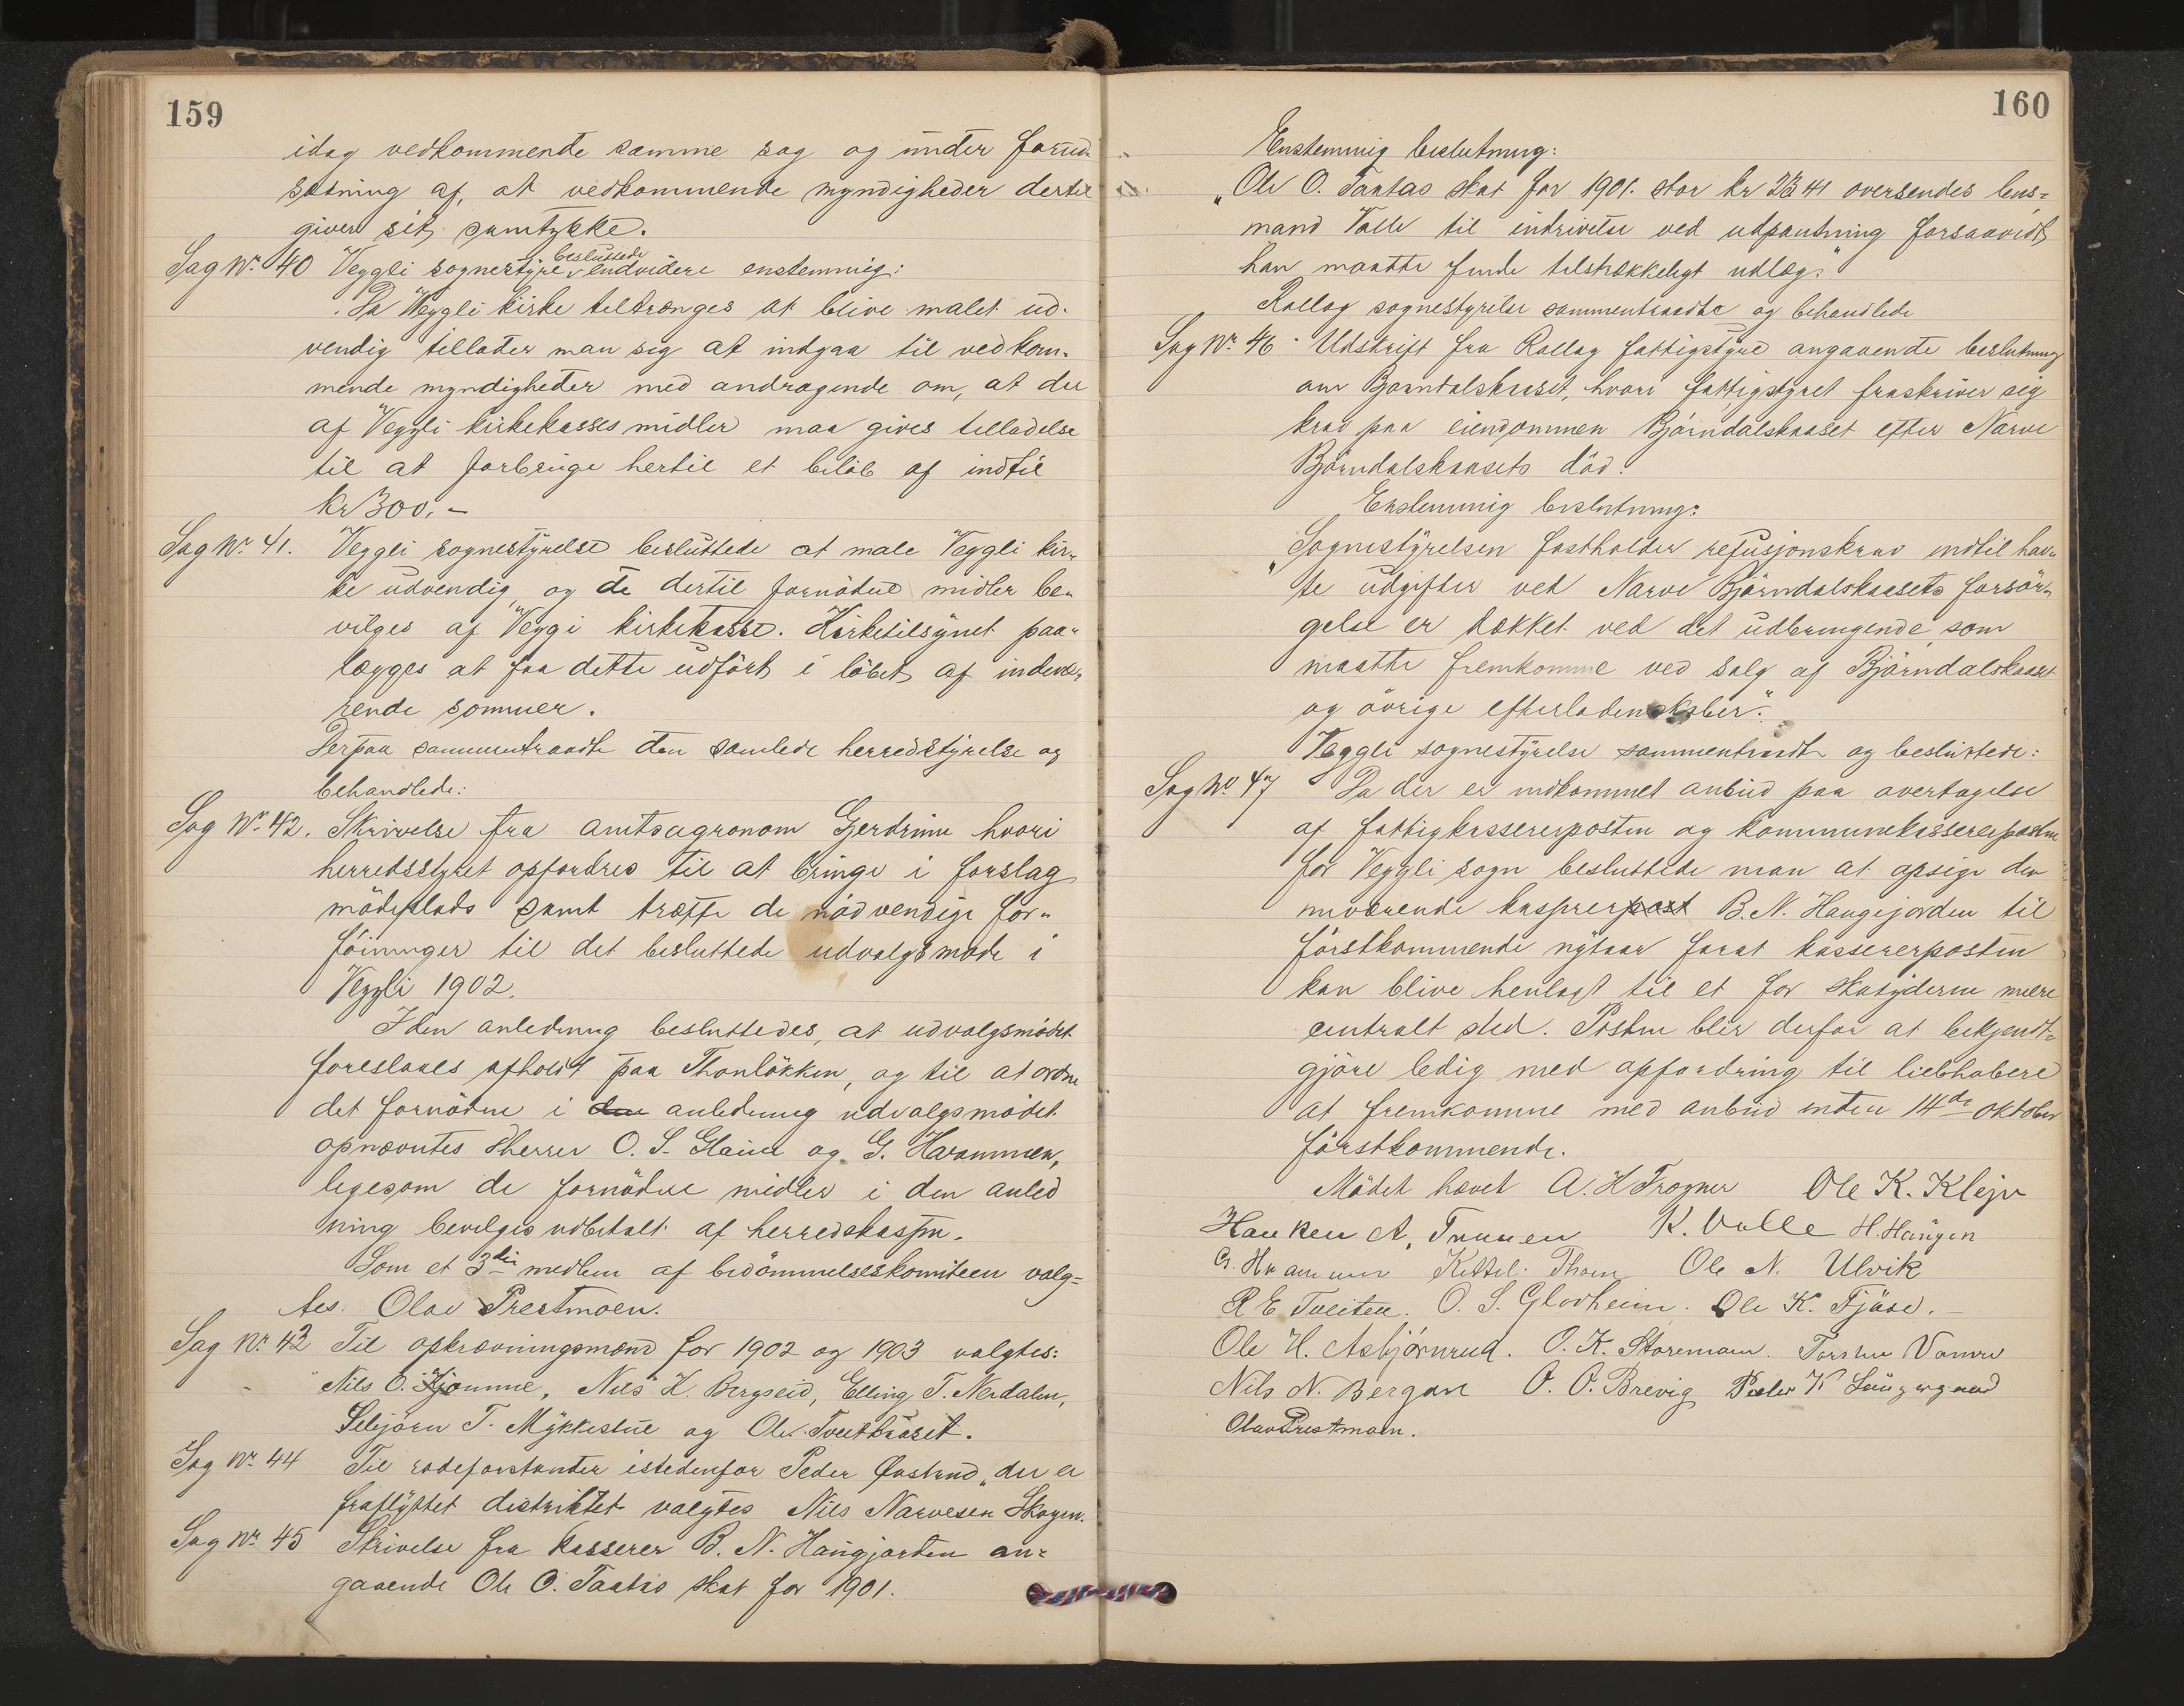 159
idag vedkommende samme sag og under forud-
sætning af, at vedkommende myndigheder dertil
giver sit samtykke.
Sag Nr. 40 Veggli sognestyre besluttede endvidere enstemmig:
Da Veggli kirke tiltrænges at blive malet ud-
vendig tillader man sig at indgaa til vedkom-
mende myndigheder med andragende om, at der
af Veggli kirkekasses midler maa gives tilladelse
til at forbruge hertil et beløb af indtil
Kr 300.-
Sag Nr. 41. Veggli sognestyrelse besluttede at male Veggli kir-
ke udvendig, og de dertil fornödne midler be-
vilges af Veggi kirkekasse. Kirketilsynet paa-
lægges at faa dette udført i löbet af indevæ-
rende sommer.
Derpaa sammentraadte den samlede herredstyrelse og
behandlede:
Sag Nr. 42. Skrivelse fra amtsagronom Gjerdrum hvori
herredsstyret opfordres til at bringe i forslag
mödeplads samt træffe de nödvendige for-
föininger til det besluttede udvalgsmöde i
Veggli 1902.
I den anledning besluttedes, at udvalgsmödet
foreslaaes afholdt paa Thonlökken, og til at ordne
det fornödne i den anledning udvalgsmödet
opnævntes dherrer O. S. og G. Haraummen,
ligesom de fornödne midler i den anled
ning bevilges udbetalt af herredskassen.
Som et 3die medlem af bedömmelseskomiteen valg-
tes Olav Prestmoen.
Sag Nr. 43 Til opkrævningsmænd for 1902 og 1903 valgtes:
Nils O. Nils K. Bergseid, Elling T. Nerdalen,
Sebjörn T. Mykkestue og Ole Tveitbraaset.
Sag Nr. 44 Til rodeforstander istedenfor Peder der er
fraflyttet distriktet valgtes Nils Narvesen Skogen.
Sag Nr. 45 Skrivelse fra kasserer B. N. Haugjorden an-
gaaende Ole O. Taatas skat for 1901.
160
Enstemmig beslutning:
"Ole O. Taatas skat for 1901. stor kr 2341 oversendes lens-
mand Valle til indrivelse ved udpantning forsaavidt
han maatte finde tilstrækkeligt udlæg."
Rollag sognestyrelse sammentraadte og behandlede
Sag Nr. 46 Udskrift fra Rollag fattigstyre angaaende beslutning
om Bjorndalskaaset, hvori fattigstyret fraskriver sig
krav paa eiendommen Björndalskaaset efter Narve
Björndalskaasets död.
Enstemmig beslutning:
"Sognestyrelsen fastholder refusjonskrav indtil hav-
te udgifter ved Narve Björndalskaasets forsör-
gelse er dækket ved det udbringende som
maatte fremkomme ved salg af Björndalskaaset
og övrige efterladenskaber."
Veggli sognestyrelse sammentraadte og besluttede:
Sag Nr. 47 Da der er indkommet anbud paa overtagelse
af fattigkassererposten og kommunekassererposten
for Veggli sogn besluttede man at opsige den
nuværende kasserer B. N. Haugejorden til
förstkommende nytaar forat kassererposten
kan blive henlagt til et for skatyderne mere
centralt sted. Posten blir derfor at bekjendt-
gjöre ledig med opfordring til liebhabere
at fremkomme med anbud inden 14de oktober
förstkommende.
Mödet hævet A. H Frogner Ole K. Klejv
Hauken A. Traaen K. Valle H. Haugen
G. Kittil Thom Ole N. Ulvik
R E Tveiten. O. S. Gladheim. Ole K. Fjöse.
Ole H. Asbjörnrud. O. K. Storemoen. Torsten Vamre
Nils N. Bergan O. O. Brevig Peder K
Olav Prestmoen.